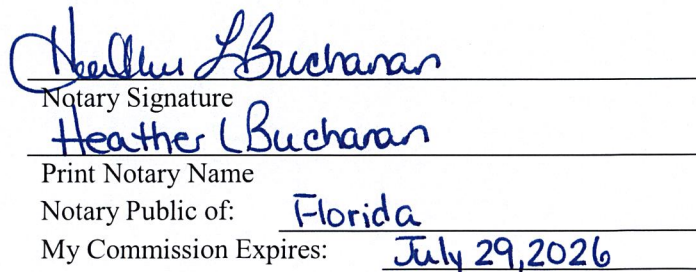 Heather L Buchanan
Notary Signature
Heather L Buchanan
Print Notary Name
Notary Public of: Florida
My Commission Expires: July 29, 2026